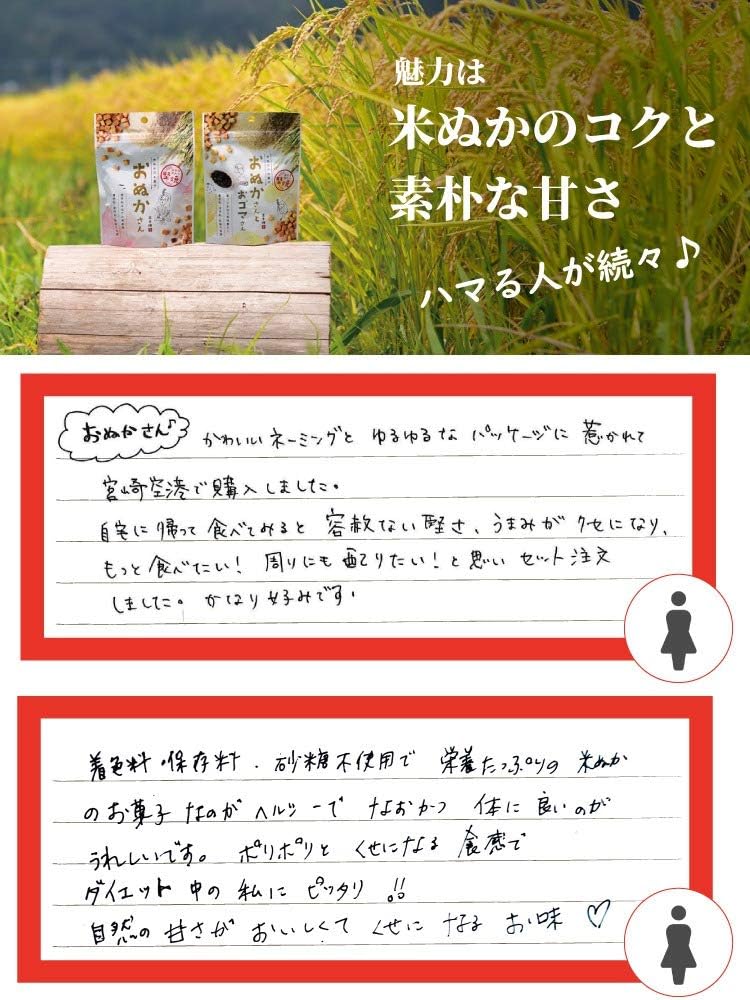 魅力は
米ぬかのコクと
素朴な甘さ
ハマる人が続々♪
おぬかさん
おぬかさんと
おコマさん
おぬかさん♪ かわいいネーミングと ゆるゆるな パッケージに 惹かれて
宮崎空港で購入しました。
自宅に帰って食べてみると 容赦ない堅さ、うまみが クセになり、
もっと食べたい! 周りにも配りたい!と思い セット注文
しました。かなり好みです。
着色料・保存料・砂糖不使用で 栄養たっぷりの 米ぬか
のお菓子なのが ヘルシーで なおかつ 体に良いのが
うれしいです。ポリポリと くせになる 食感で
ダイエット中の私に ピッタリ!!
自然の 甘さが おいしくて くせに なる お味 ♡